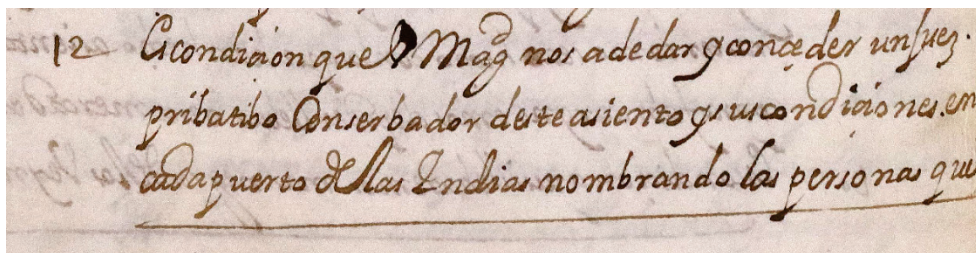 12 Es condicion que V Magd nos a de dar y conçeder un juez.
pribatibo Conserbador deste asiento y sus condiciones. en
cada puerto de las Indias nombrando las personas que